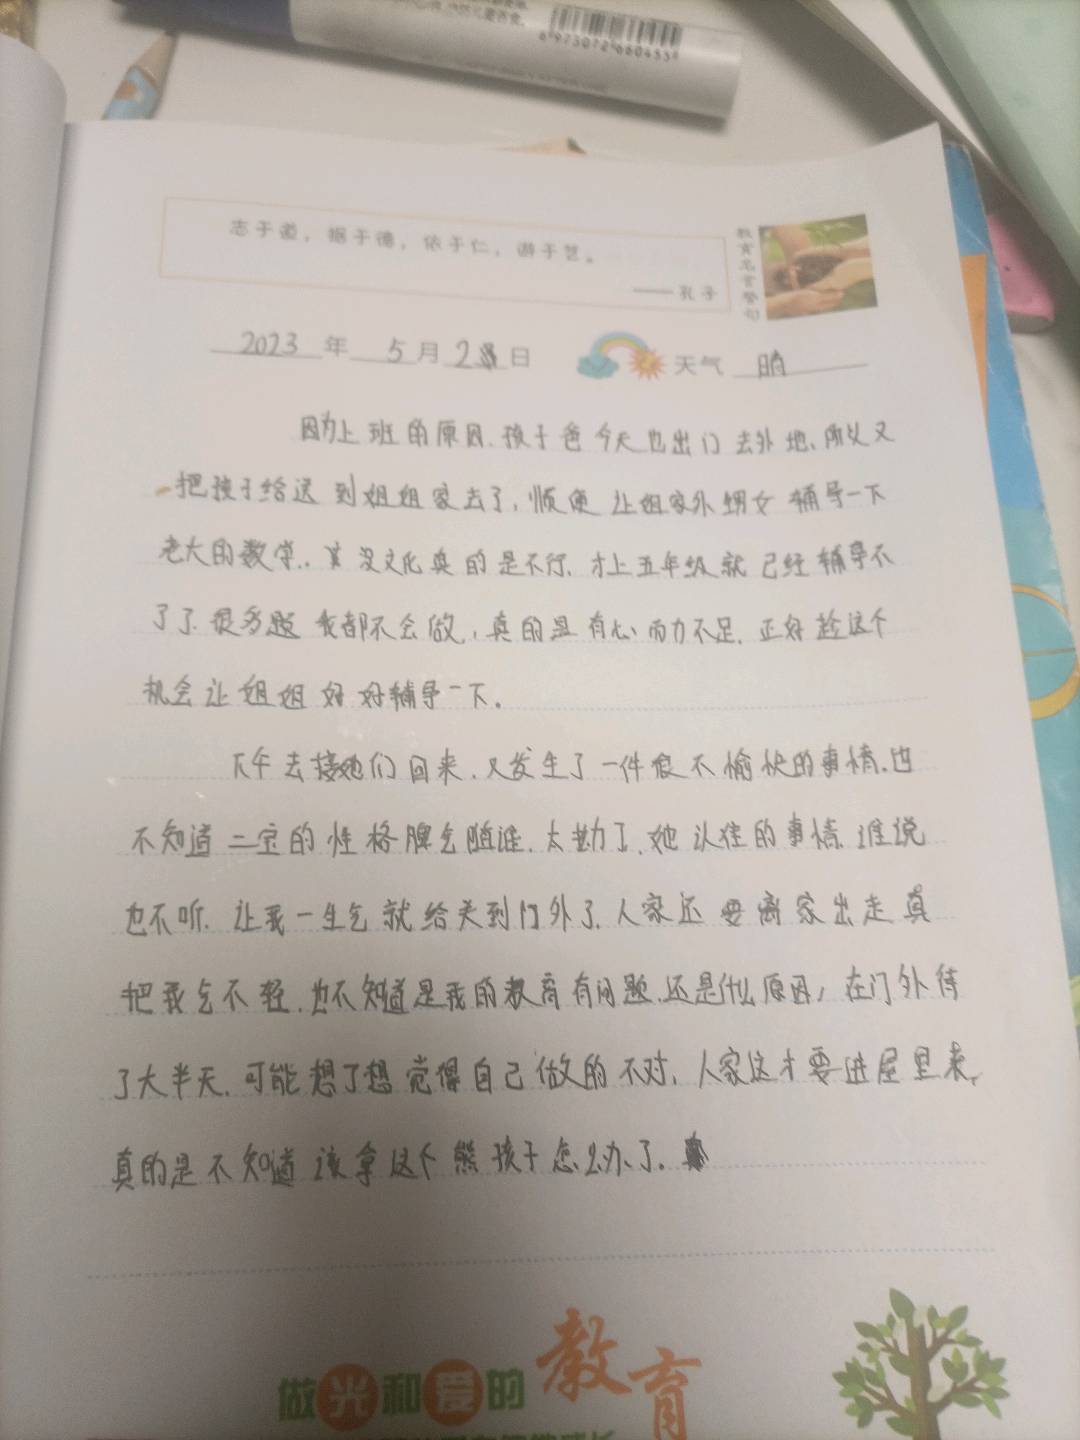 6973072660455
志于道，据于德，依于仁，游于艺。
——孔子
教育名言警句
2023年 5月 28日 天气 晴
因为上班的原因.孩子爸今天也出门去外地、所以又
把孩子给送到姐姐家去了,顺便让姐家外甥女辅导一下
老大的数学..这没文化真的是不行.才上五年级就已经辅导不
了了.很多题我都不会做,真的是有心而力不足.正好趁这个
机会让姐姐好好辅导一下。
下午去接她们回来.又发生了一件很不愉快的事情.也
不知道二宝的性格脾气随谁.太勤了.她认准的事情.谁说
也不听.让我一生气就给关到门外了.人家还要离家出走真
把我气不轻.也不知道是我的教育有问题.还是什么原因,在门外待
了大半天.可能想了想觉得自己做的不对,人家这才要进屋里来,
真的是不知道该拿这个熊孩子怎么办了。
做光和爱的教育